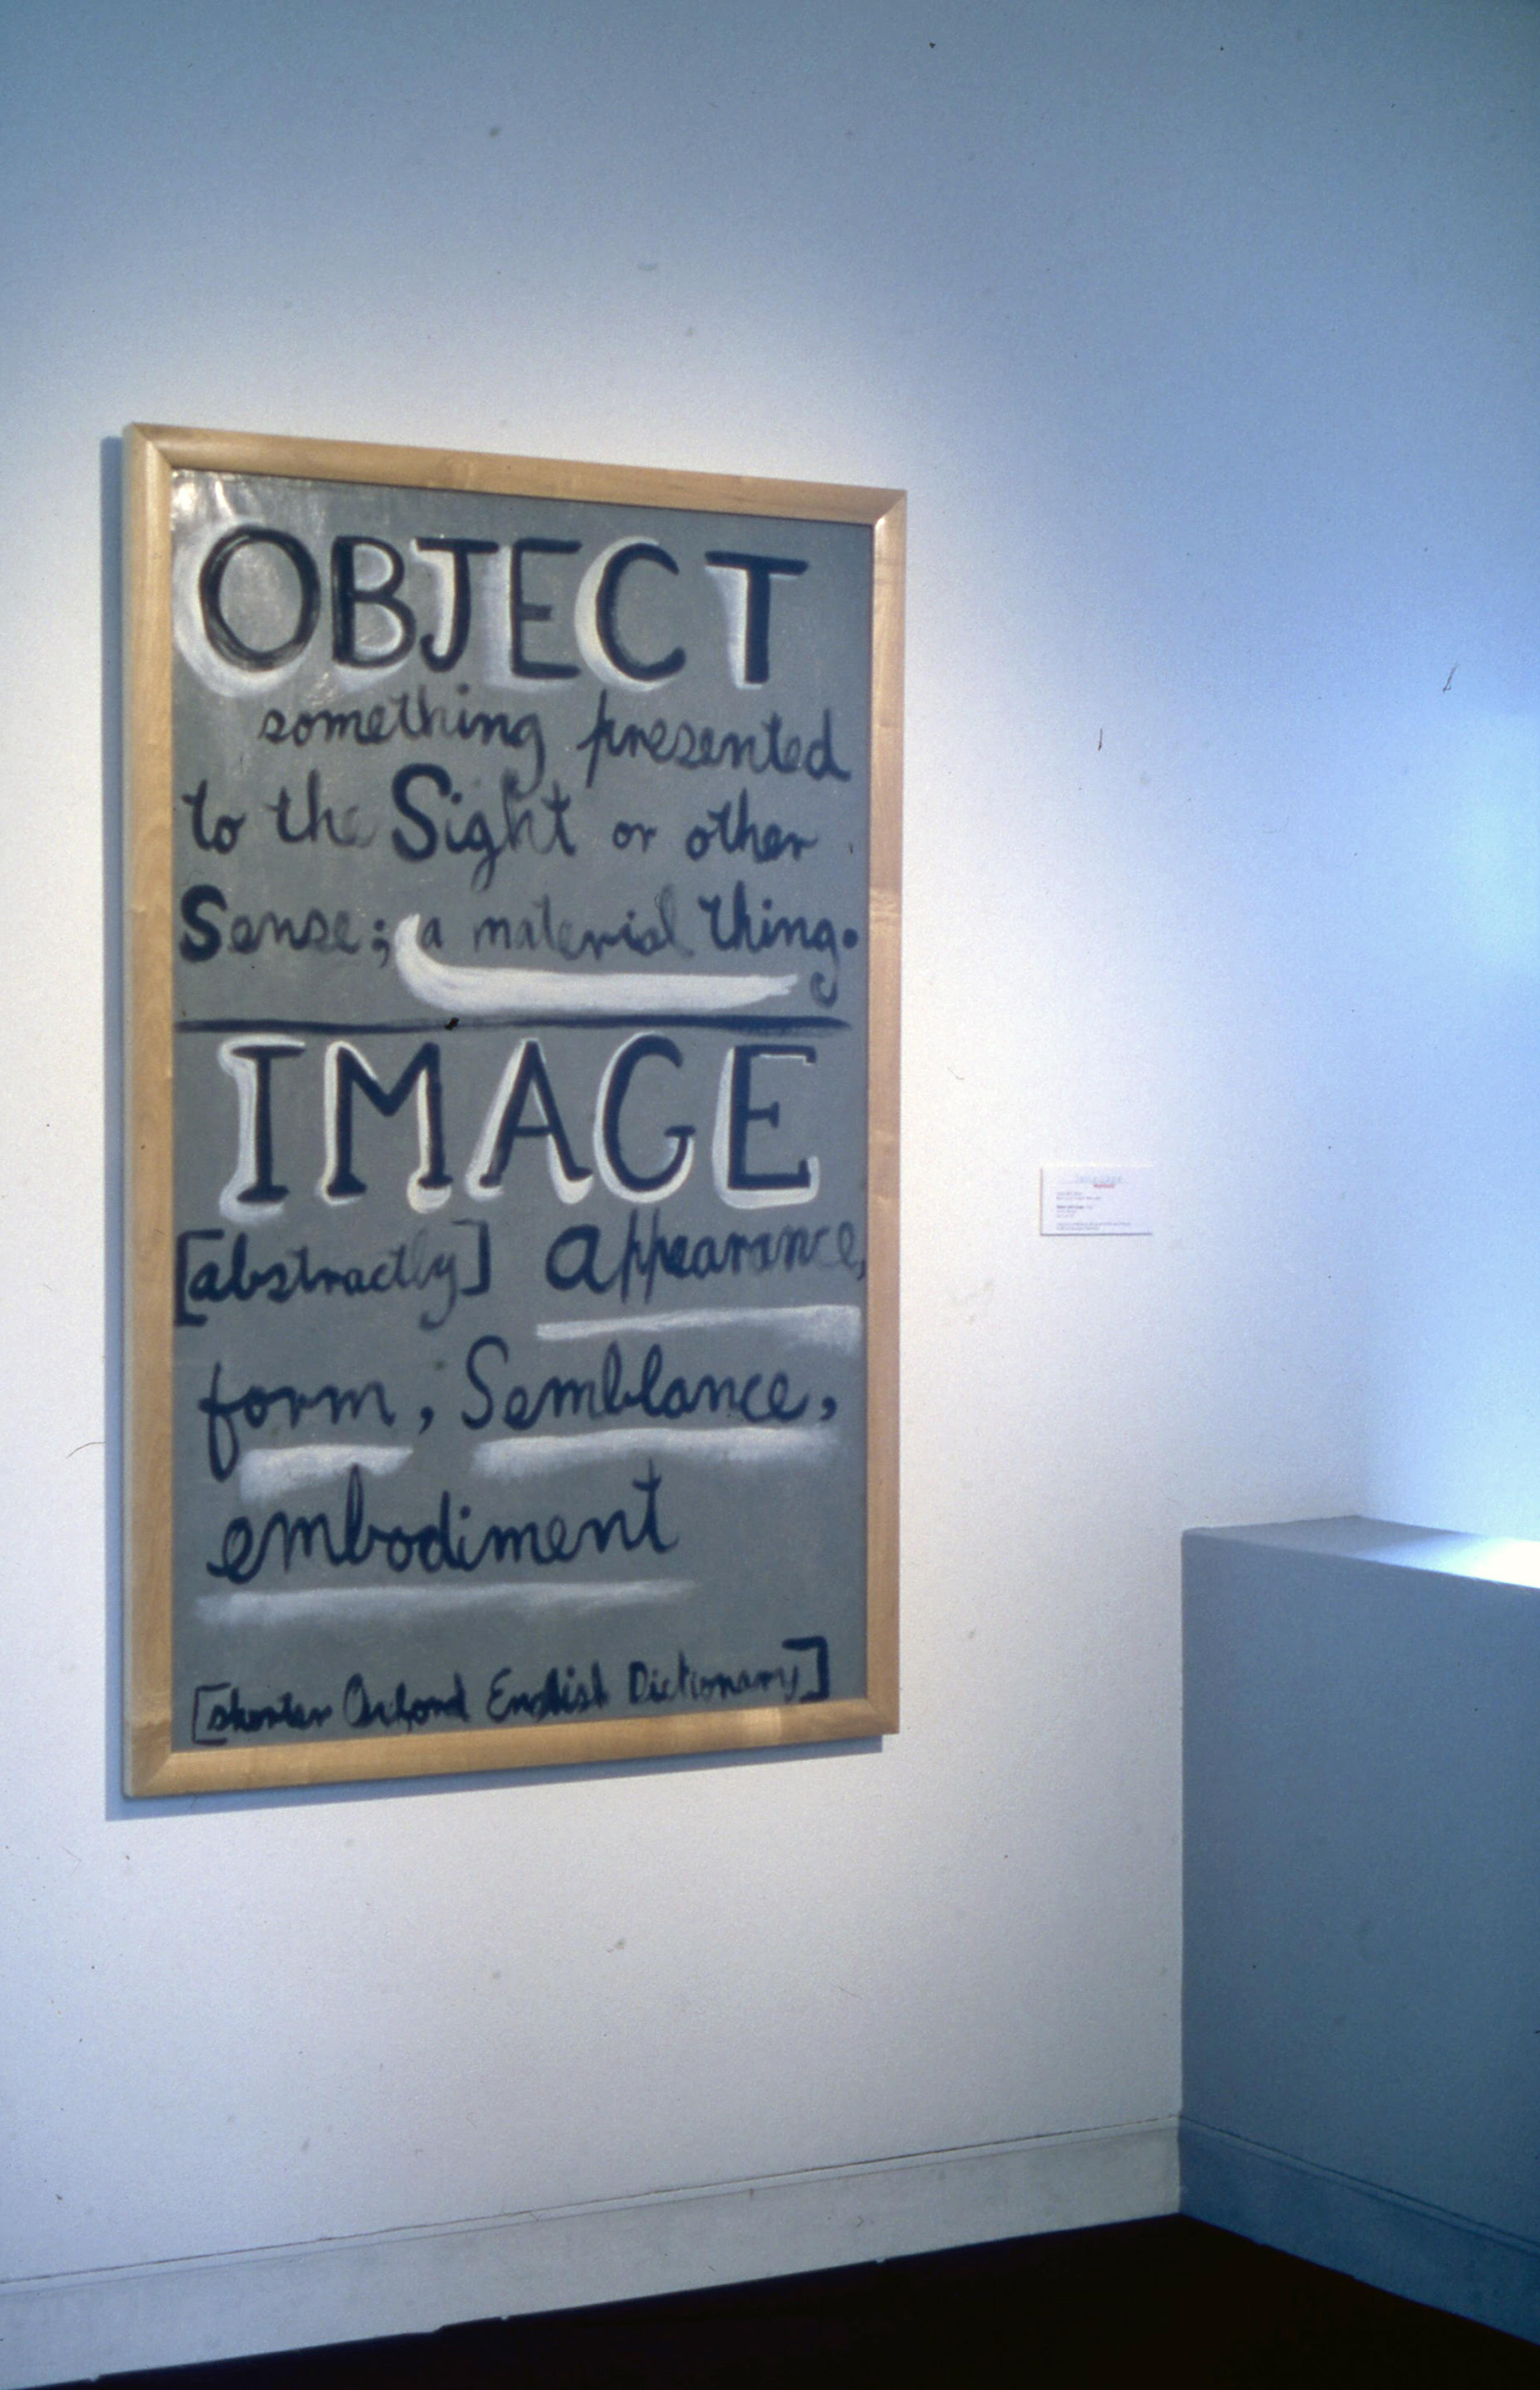 OBJECT
something presented
to the Sight or other
Sense; a material thing.
IMAGE
[abstractly] appearance,
form, Semblance,
embodiment
[shorter Oxford English Dictionary]